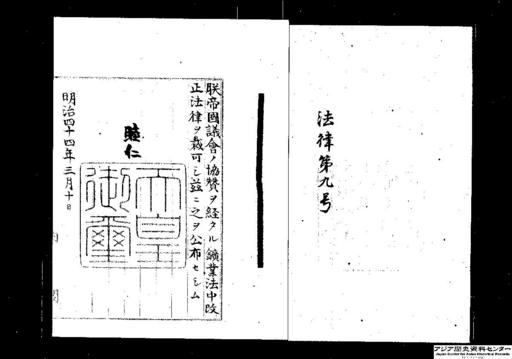 法律第九号
朕帝國議會ノ協贊ヲ経タル鑛業法中改
正法律ヲ裁可シ茲ニ之ヲ公布セシム
睦仁
天皇
御璽
明治四十四年三月十日
アジア歴史資料センター
Japan Center for Asian Historical Records